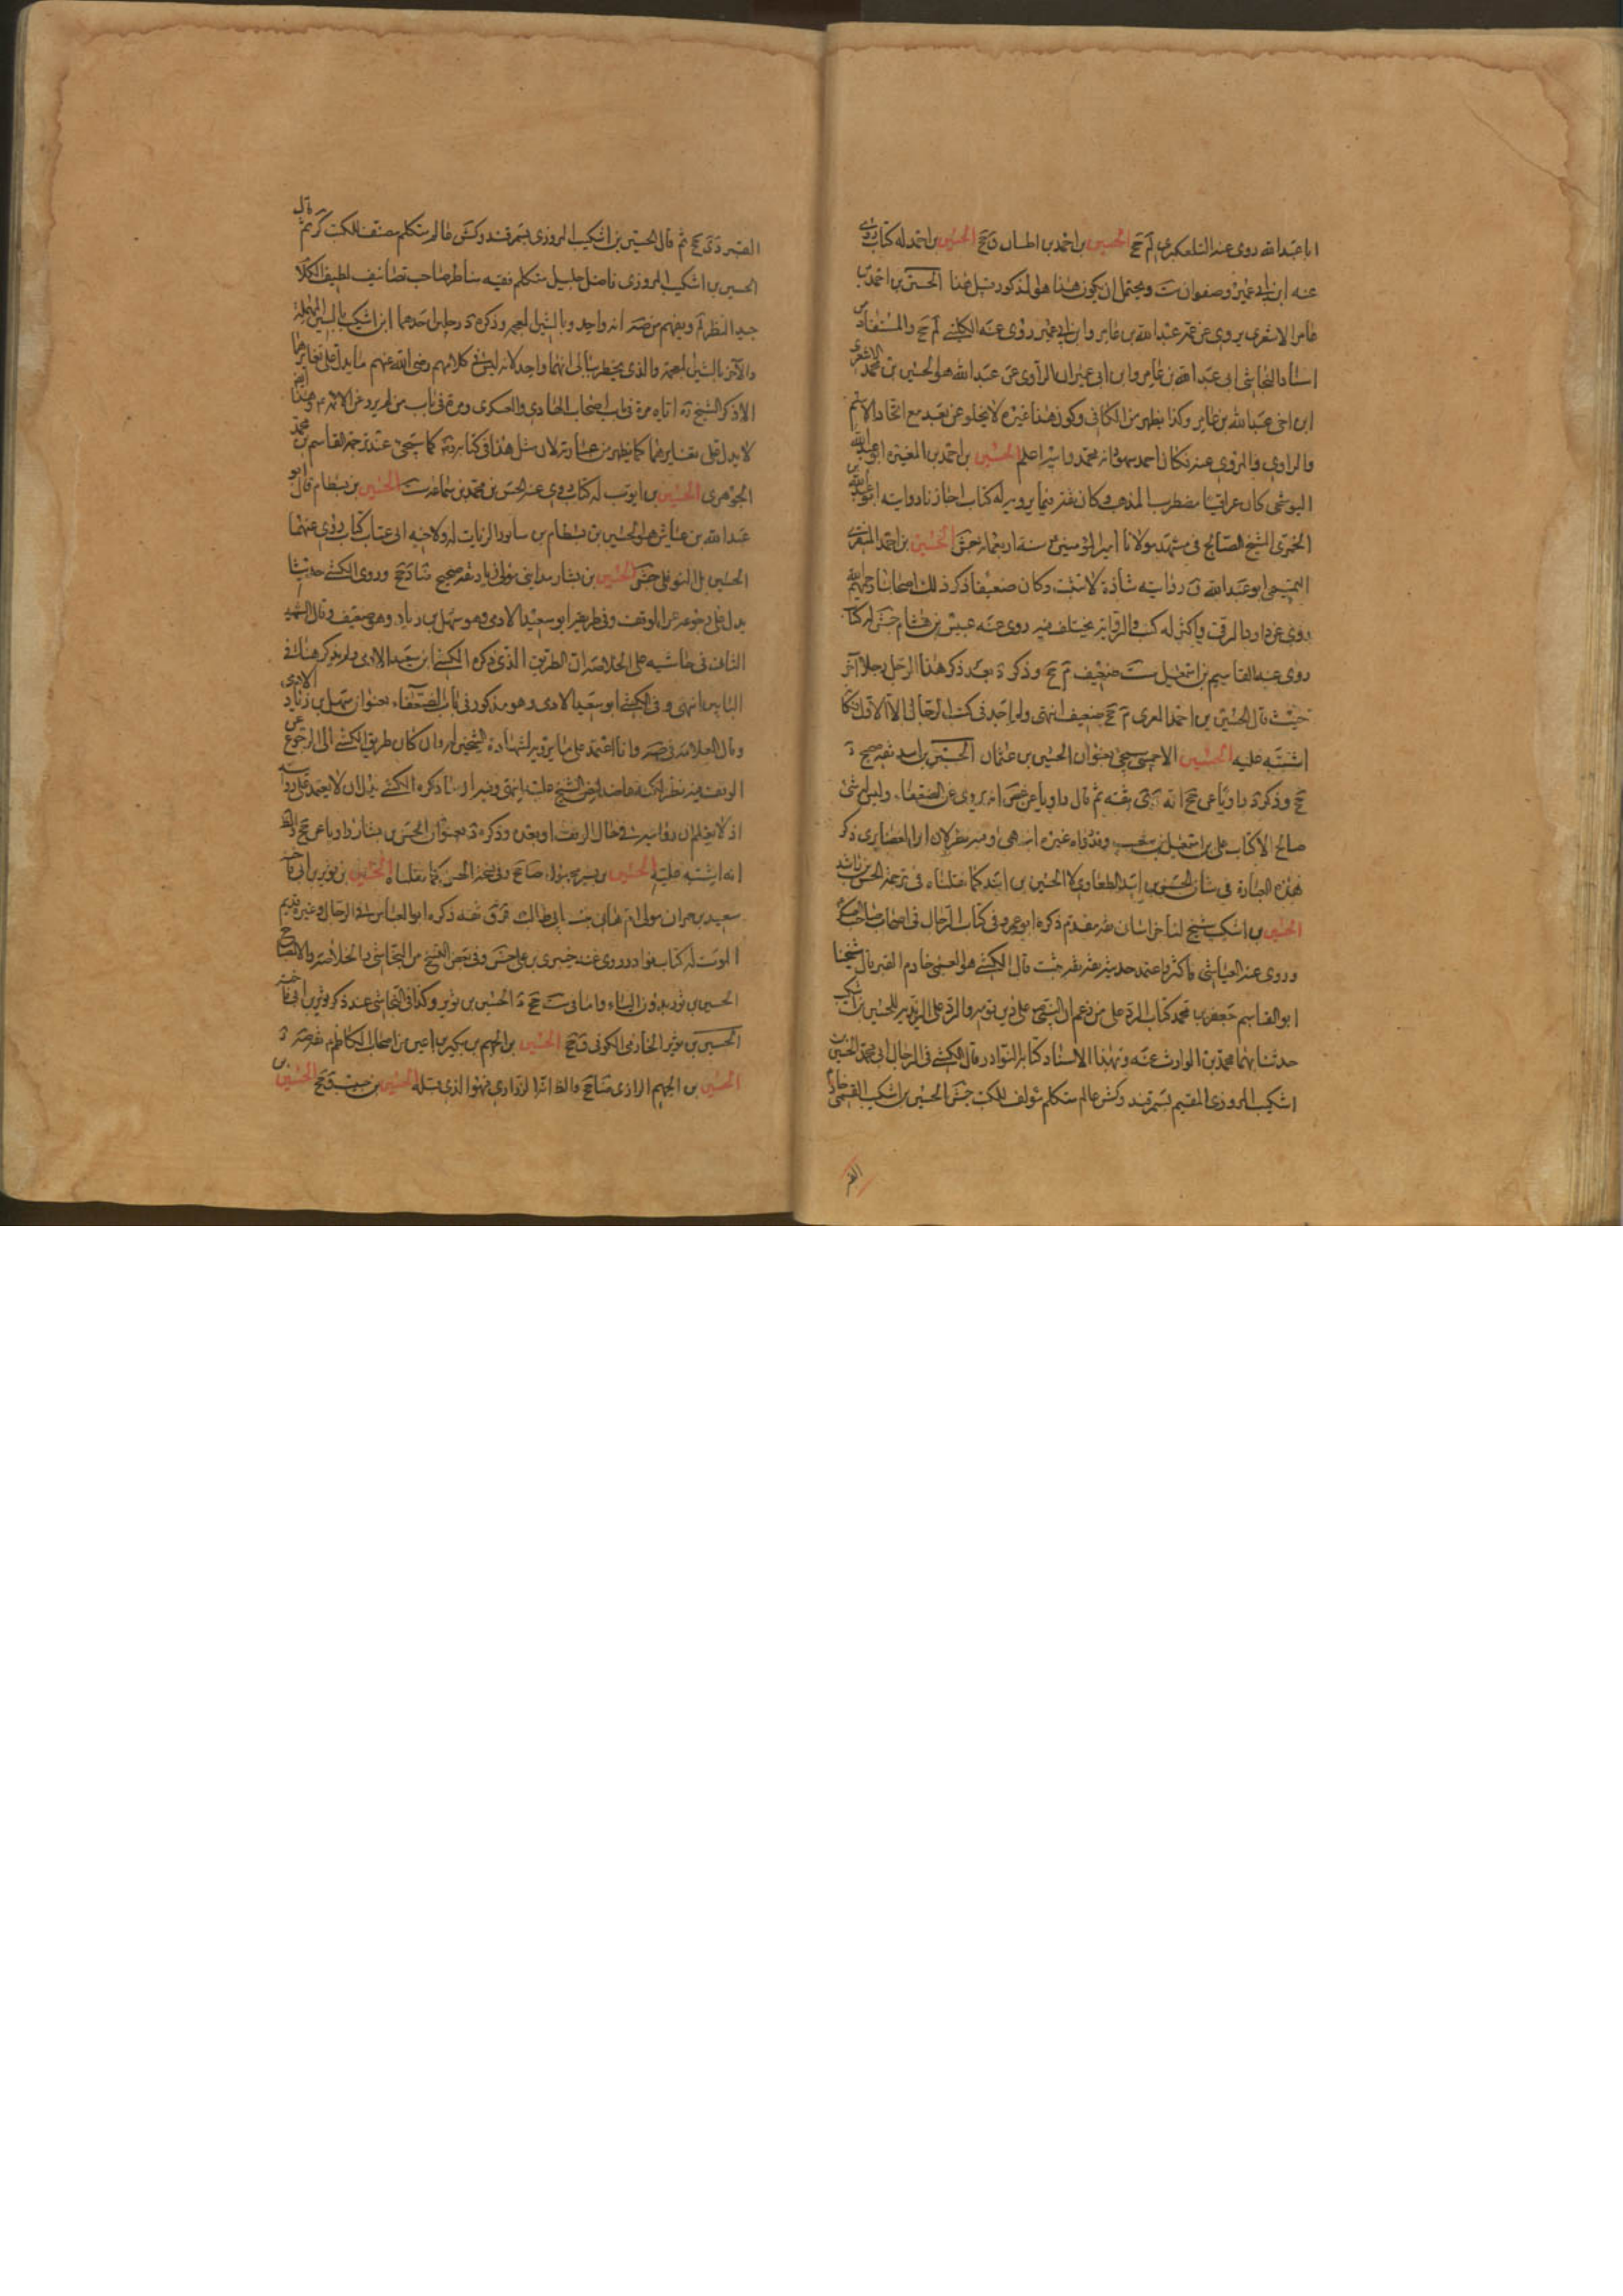 ابا عبد الله روى عنه التلعكبرى لم جخ الحسين بن احمد بن ق جخ الحسين بن احمد له كتاب روى
عنه ابن ابى عمير وصفوان ست ويحتمل ان يكون هذا هو المذكور قبل هذا الحسين بن احمد بن
عامر الاشعرى يروى عن عمه عبد الله بن عامر وابن ابى عمير روى عنه الكلينى لم جخ والمستفاد من
اسناد النجاشى الى عبد الله بن عامر وابن ابى عمير ان الراوى عن عبد الله هو الحسين بن محمد الاشعرى
ابن اخى عبد الله بن عامر وكذا يظهر من الكافى وكون هذا غيره لا يخلو عن بعد مع اتحاد الاسم
والراوى والمروى عنه فكان احمد سهو وانه محمد والله اعلم الحسين بن احمد بن المغيرة ابو عبد الله
البوشنجى كان عراقيا مضطرب المذهب وكان ثقة فيما يرويه له كتاب اجازنا روايته ابو عبد الله بن
الخمرى الشيخ الصالح فى مشهد مولانا امير المؤمنين ع سنة اربعمائة جش الحسين بن احمد المنقرى
التميمى ابو عبد الله ق رواية شاذة لا تثبت وكان ضعيفا ذكر ذلك اصحابنا رحمهم الله
روى عن داود الرقى واكثر له كتب والرواية تختلف فيه روى عنه عبيس بن هشام جش له كتاب
روى عنه القاسم بن اسمعيل ست ضعيف م جخ وذكره د بعد ذكر هذا الرجل رجلا آخر
حيث قال الحسين بن احمد م جخ ضعيف انتهى ولم اجد فى كتب الرجال الا الاول فكانه
اشتبه عليه الحسين الاحمسى يجئ بعنوان الحسين بن عثمان الحسين بن اسد ثقة صحيح د
جخ وذكره د راويا عن جخ انه ثقة ثم قال راويا عن غض انه يروى عن الضعفاء وليس له شئ
صالح الا كتاب على بن اسمعيل بن شعيب وقد رواه غيره انتهى وفيه نظر لان ابن الغضايرى ذكر
هذه العبارة فى شان الحسن بن اسد الطفاوى لا الحسين بن اسد كما نقلناه فى ترجمة الحسن بن راشد
الحسين بن اشكيب شيخ لنا خراسانى ثقة مقدم ذكره ابو عمرو فى كتاب الرجال فى اصحاب صاحب العسكر
وروى عنه العياشى فاكثر واعتمد حديثه ثقة ثقة ثبت قال الكشى هو القمى خادم القبر قال شيخنا
ابو القاسم جعفر بن محمد كتاب الرد على من زعم ان النبى ص على دين قومه والرد على الزيدية للحسين بن اشكيب
حدثنا بهما محمد بن الوارث عنه وبهذا الاسناد كتابه النوادر وقال الكشى فى الرجال ابى محمد الحسين بن
اشكيب المروزى المقيم بسمرقند وكش عالم متكلم مؤلف للكتب جش الحسين بن اشكيب القمى خادم
القبر
القبر دى جخ ثم قال الحسين بن اشكيب المروزى بسمرقند وكش عالم متكلم مصنف للكتب كر ثم قال
الحسين بن اشكيب المروزى فاضل جليل متكلم فقيه مناظر صاحب تصانيف لطيف الكلام
جيد النظر لم ويفهم من صه انه واحد وبالشين المعجمة وذكره د رجلين احدهما ابن اشكيب بالسين المهملة
والآخر بالشين المعجمة والذى يخطر ببالى انهما واحد لانه ليس فى كلامهم رضى الله عنهم ما يدل على تغايرهما
الا ذكر الشيخ ره اياه مرة فى باب اصحاب الهادى والعسكرى ومرة فى باب من لم يرو عن الائمة ع وهذا ايضا
لا يدل على تغايرهما كما يظهر من عبارته لان مثل هذا فى كتابه كما سيجئ عند ترجمة القاسم بن محمد
الجوهرى الحسين بن ايوب له كتاب روى عنه الحسن بن محمد بن سماعة ست الحسين بن بسطام قال ابو
عبد الله بن عياش هو الحسين بن بسطام بن سابور الزيات له ولاخيه ابى عتاب كتاب روى عنهما
الحسين بن النوفلى جش الحسين بن بشار مداينى مولى زياد ثقة صحيح ضا د جخ وروى الكشى حديثا
يدل على رجوعه عن الوقف وفى طريقه ابو سعيد الادمى وهو سهل بن زياد وهو ضعيف وقال الشهيد
الثانى فى حاشيه على الخلاصة ان الطريق الذى ذكره الكشى ابن سعيد الادمى ولم يذكر هناك فى
البابين انتهى وفى الكشى ابو سعيد الادمى وهو مذكور فى باب الضعفاء بعنوان سهل بن زياد الادمى
وقال العلامة فى صه وانا اعتمد على ما يرويه لشهادة الشيخين له وان كان طريق الكشى الى الرجوع عن
الوقف فيه نظر لكنه عاضد لنص الشيخ عليه انتهى وفيه ان ما ذكره الكشى يدل ان لا يعتمد على رواياته
اذ لا يعلم ان روايته فى حال الوقف او بعده وذكره د بعنوان الحسن بن بشار راويا عن جخ والظ
انه اشتبه عليه الحسين بن مجهول ضا جخ وفى نسخة الحسن كما نقلناه الحسين بن ثوير بن ابى فاخته
سعيد بن حمران مولى ام هانى بنت ابى طالب قر ق ثقة ذكره ابو العباس فى الرجال وغيره قديم
الموت له كتاب نوادر روى عنه خيبرى بن على جش وفى بعض النسخ من النجاشى والخلاصة والايضاح
الحسين بن ثور بدون الياء وما فى ست جخ د الحسين بن ثوير وكذا فى النجاشى عند ذكر ثوير بن ابى فاخته
الحسين بن ثوير الخازمى الكوفى ق جخ الحسين بن الجهم بن بكير بن اعين من اصحاب الكاظم ع ثقة صه د
الحسين بن الجهم الرازى ضا جخ والظ انه الزرارى فهو الذى قبله الحسين بن حبيب ق جخ الحسين بن